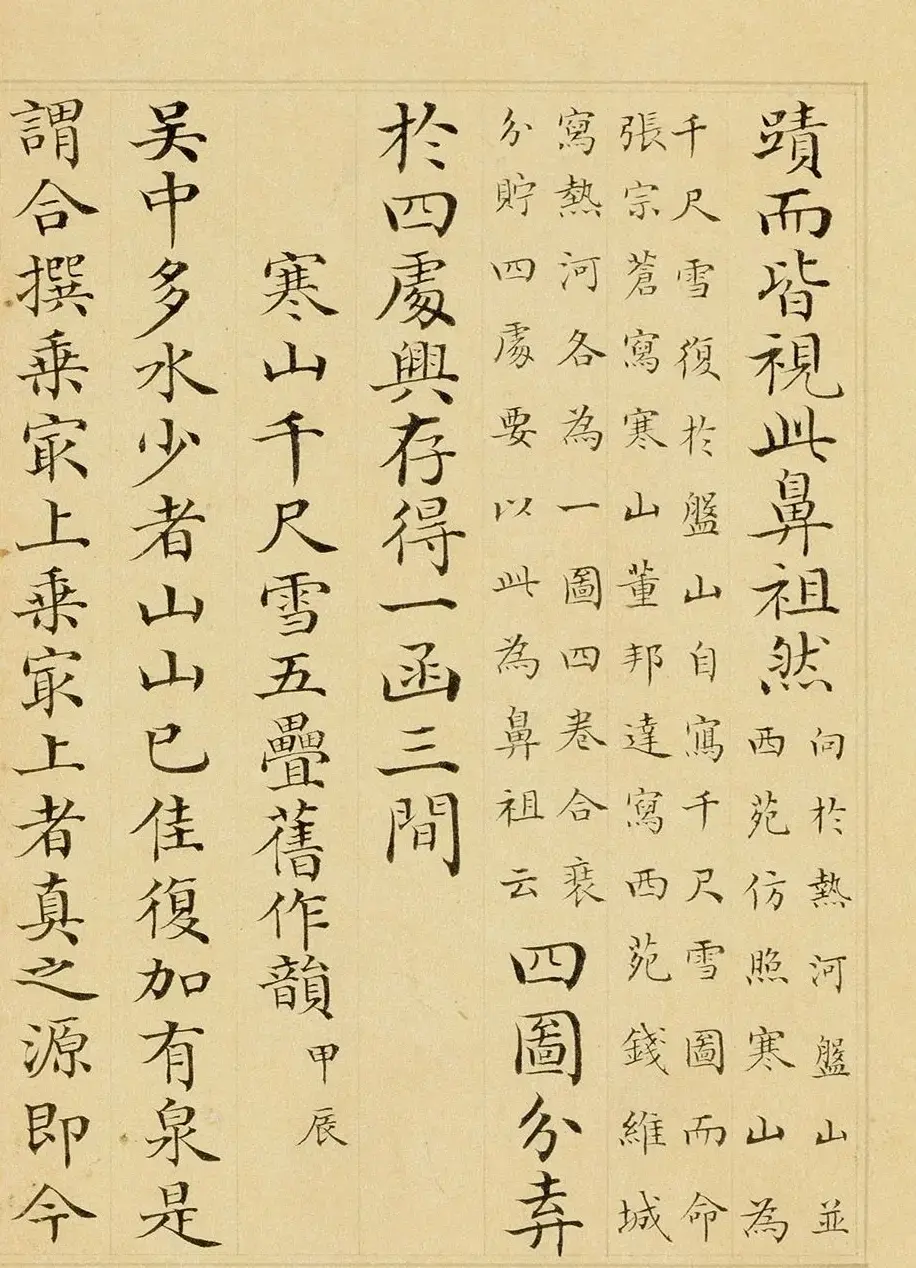 蹟而皆視此鼻祖然
向於熱河盤山並
西苑仿照寒山為
千尺雪復於盤山自寫千尺雪圖而命
張宗蒼寫寒山董邦達寫西苑錢維城
寫熱河各為一圖四卷合袠
分貯四處要以此為鼻祖云
四圖分弆
於四處興存得一函三間
寒山千尺雪五疊舊作韻 甲辰
吳中多水少者山山已佳復加有泉是
謂合撰乗㝡上乗㝡上者真之源即今